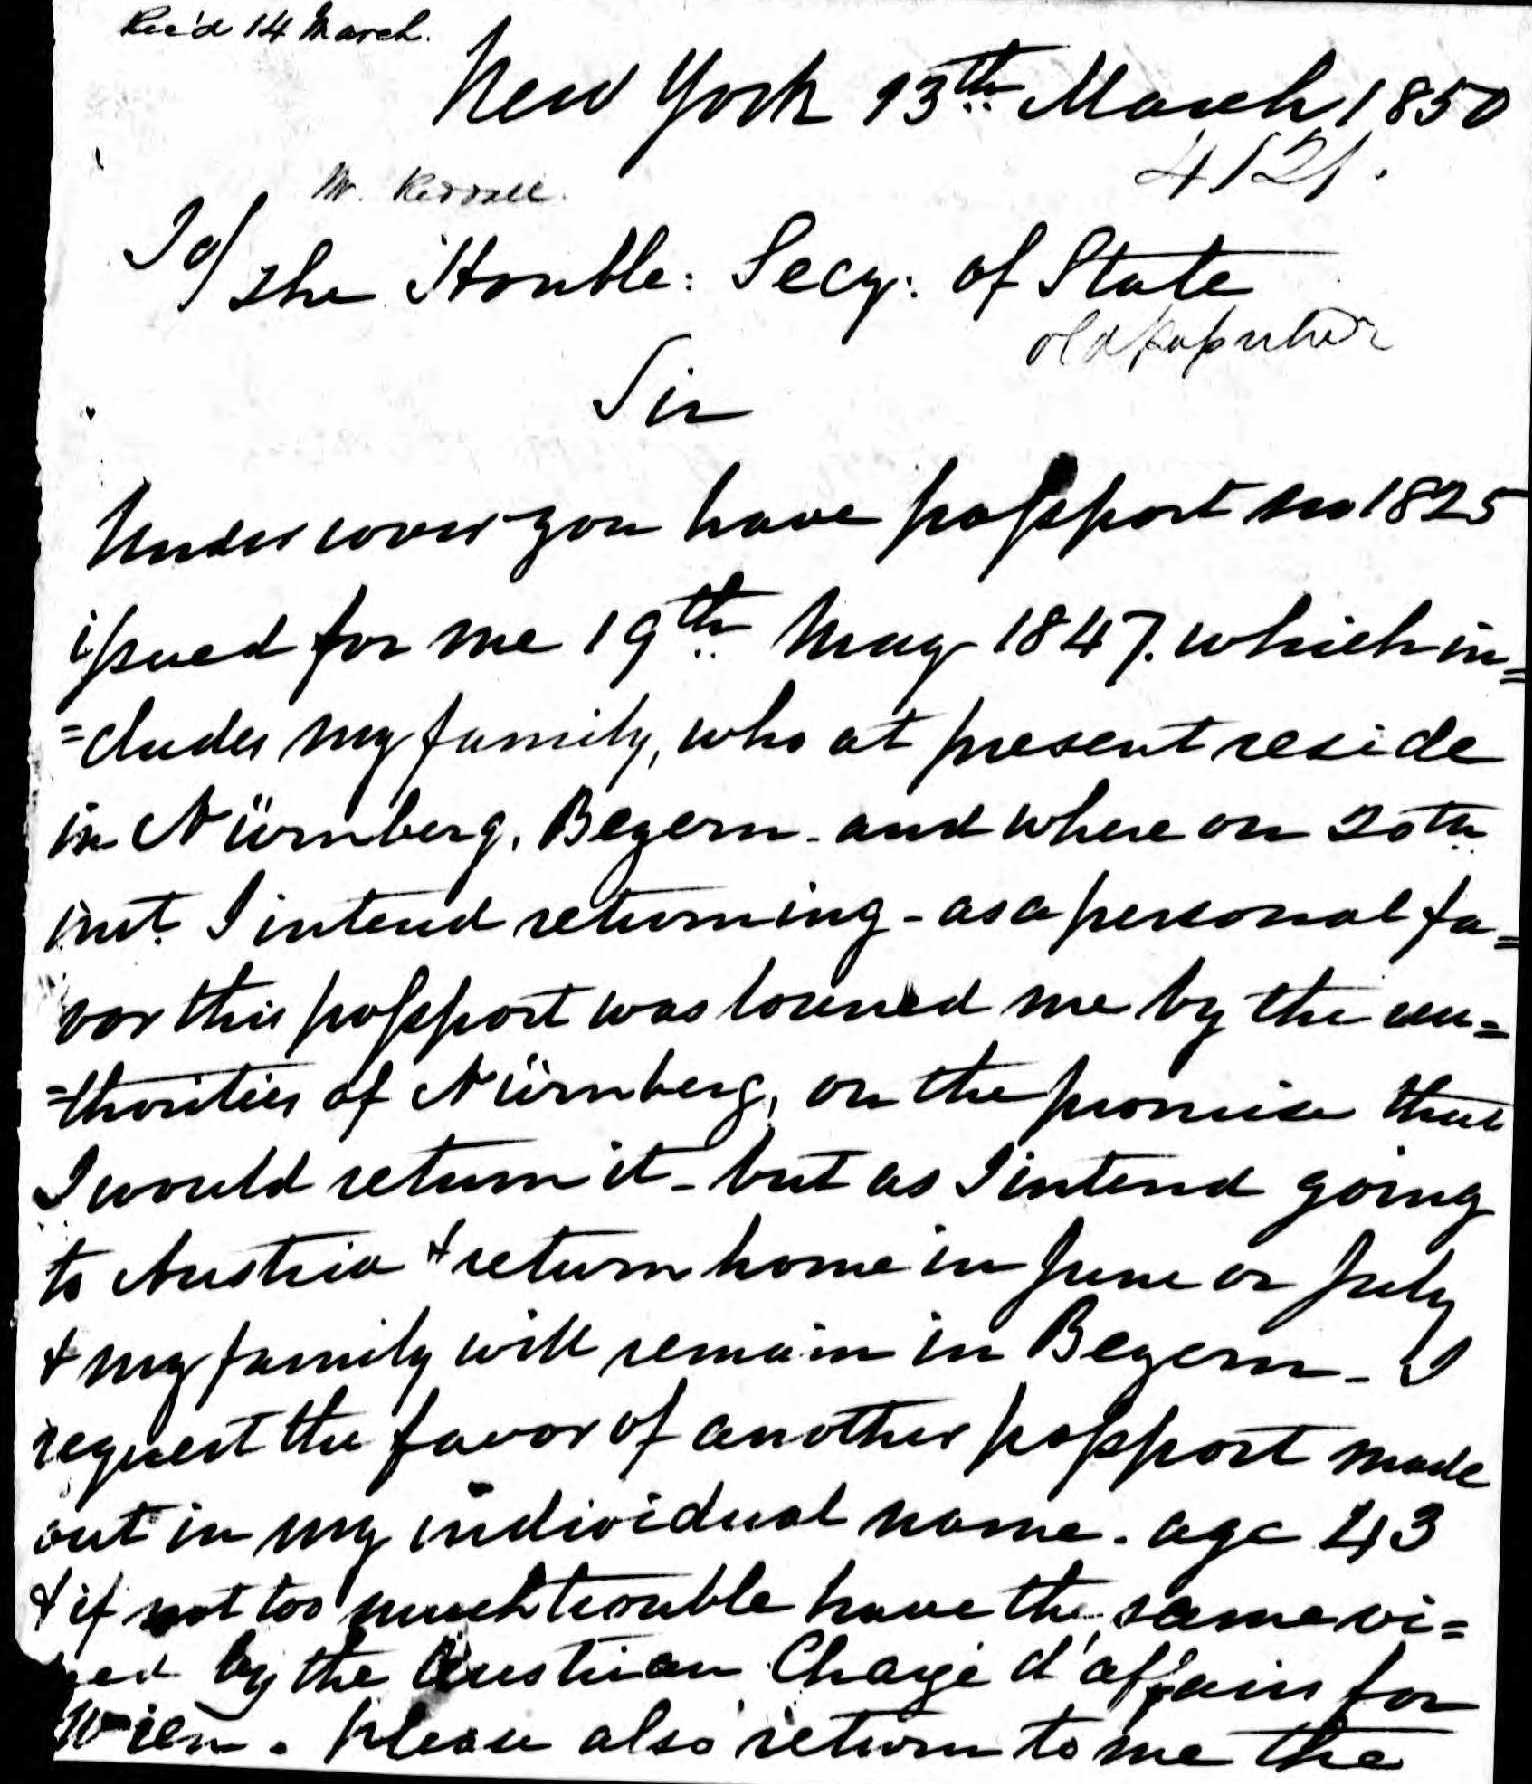 Rec'd 14 March.
New York 13th March 1850
4121.
Mr.
To/
The Honble: Secy: of State
old
Sir
Under cover you have passport no 1825
issued for me 19th May 1847. which in=
=cludes my family, who at present reside
in Nürnberg, Beyern - and where on 20th
inst. I intend returning - as a personal fa=
vor this passport was loaned me by the au=
=thorities of Nürnberg, on the promise that
I would return it - but as I intend going
to Austria & return home in June or July
& my family will remain in Beyern - I
request the favor of another passport made
out in my individual name. age 43
& if not too much trouble have the same vi=
by the Austrian Chargé d'affairs for
Wien. Please also return to me the